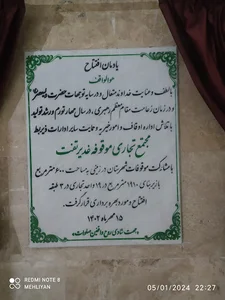 یادمان افتتاح
هوالواقف
با لطف و عنایت خداوند متعال و در سایه توجهات حضرت ولیعصر
و در زمان زعامت مقام معظم رهبری، در سال مهار تورم و رشد تولید
با تلاش اداره اوقاف و امور خیریه و حمایت سایر ادارات ذیربط
مجتمع تجاری موقوفه غدیر تفت
با مشارکت موقوفات شهرستان در زمینی به مساحت ۶۰۰ مترمربع
با زیربنای ۱۹۱۰ مترمربع در ۱۹ واحد تجاری در ۳ طبقه
افتتاح و مورد بهره برداری قرار گرفت.
۱۵ مهرماه ۱۴۰۲
جهت شادی روح واقفین صلوات
REDMI NOTE 8
MEHLIYAN
05/01/2024 22:27